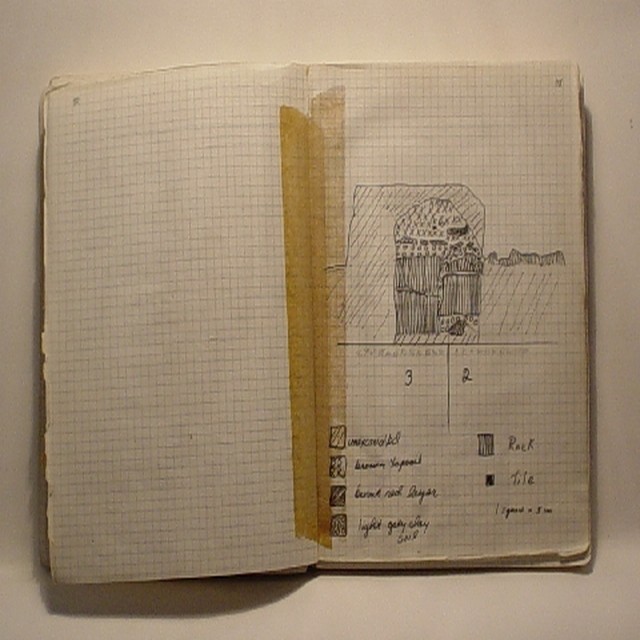 3 2
unexcavated
brown
burnt red layer
light grey clay
soil
Rock
Tile
1 square = 5 cm